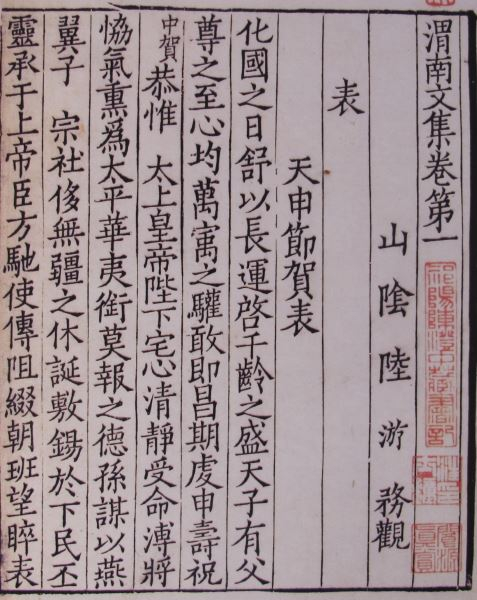 渭南文集卷第一
山陰陸游務觀
表
天申節賀表
化國之日舒以長運啓千齡之盛天子有父
尊之至心均萬㝢之驩敢即昌期虔申壽祝
中賀恭惟 太上皇帝陛下宅心清靜受命溥將
恊氣熏爲太平華夷銜莫報之德孫謀以燕
翼子 宗社侈無疆之休誕敷錫於下民丕
靈承于上帝臣方馳使傳阻綴朝班望睟表